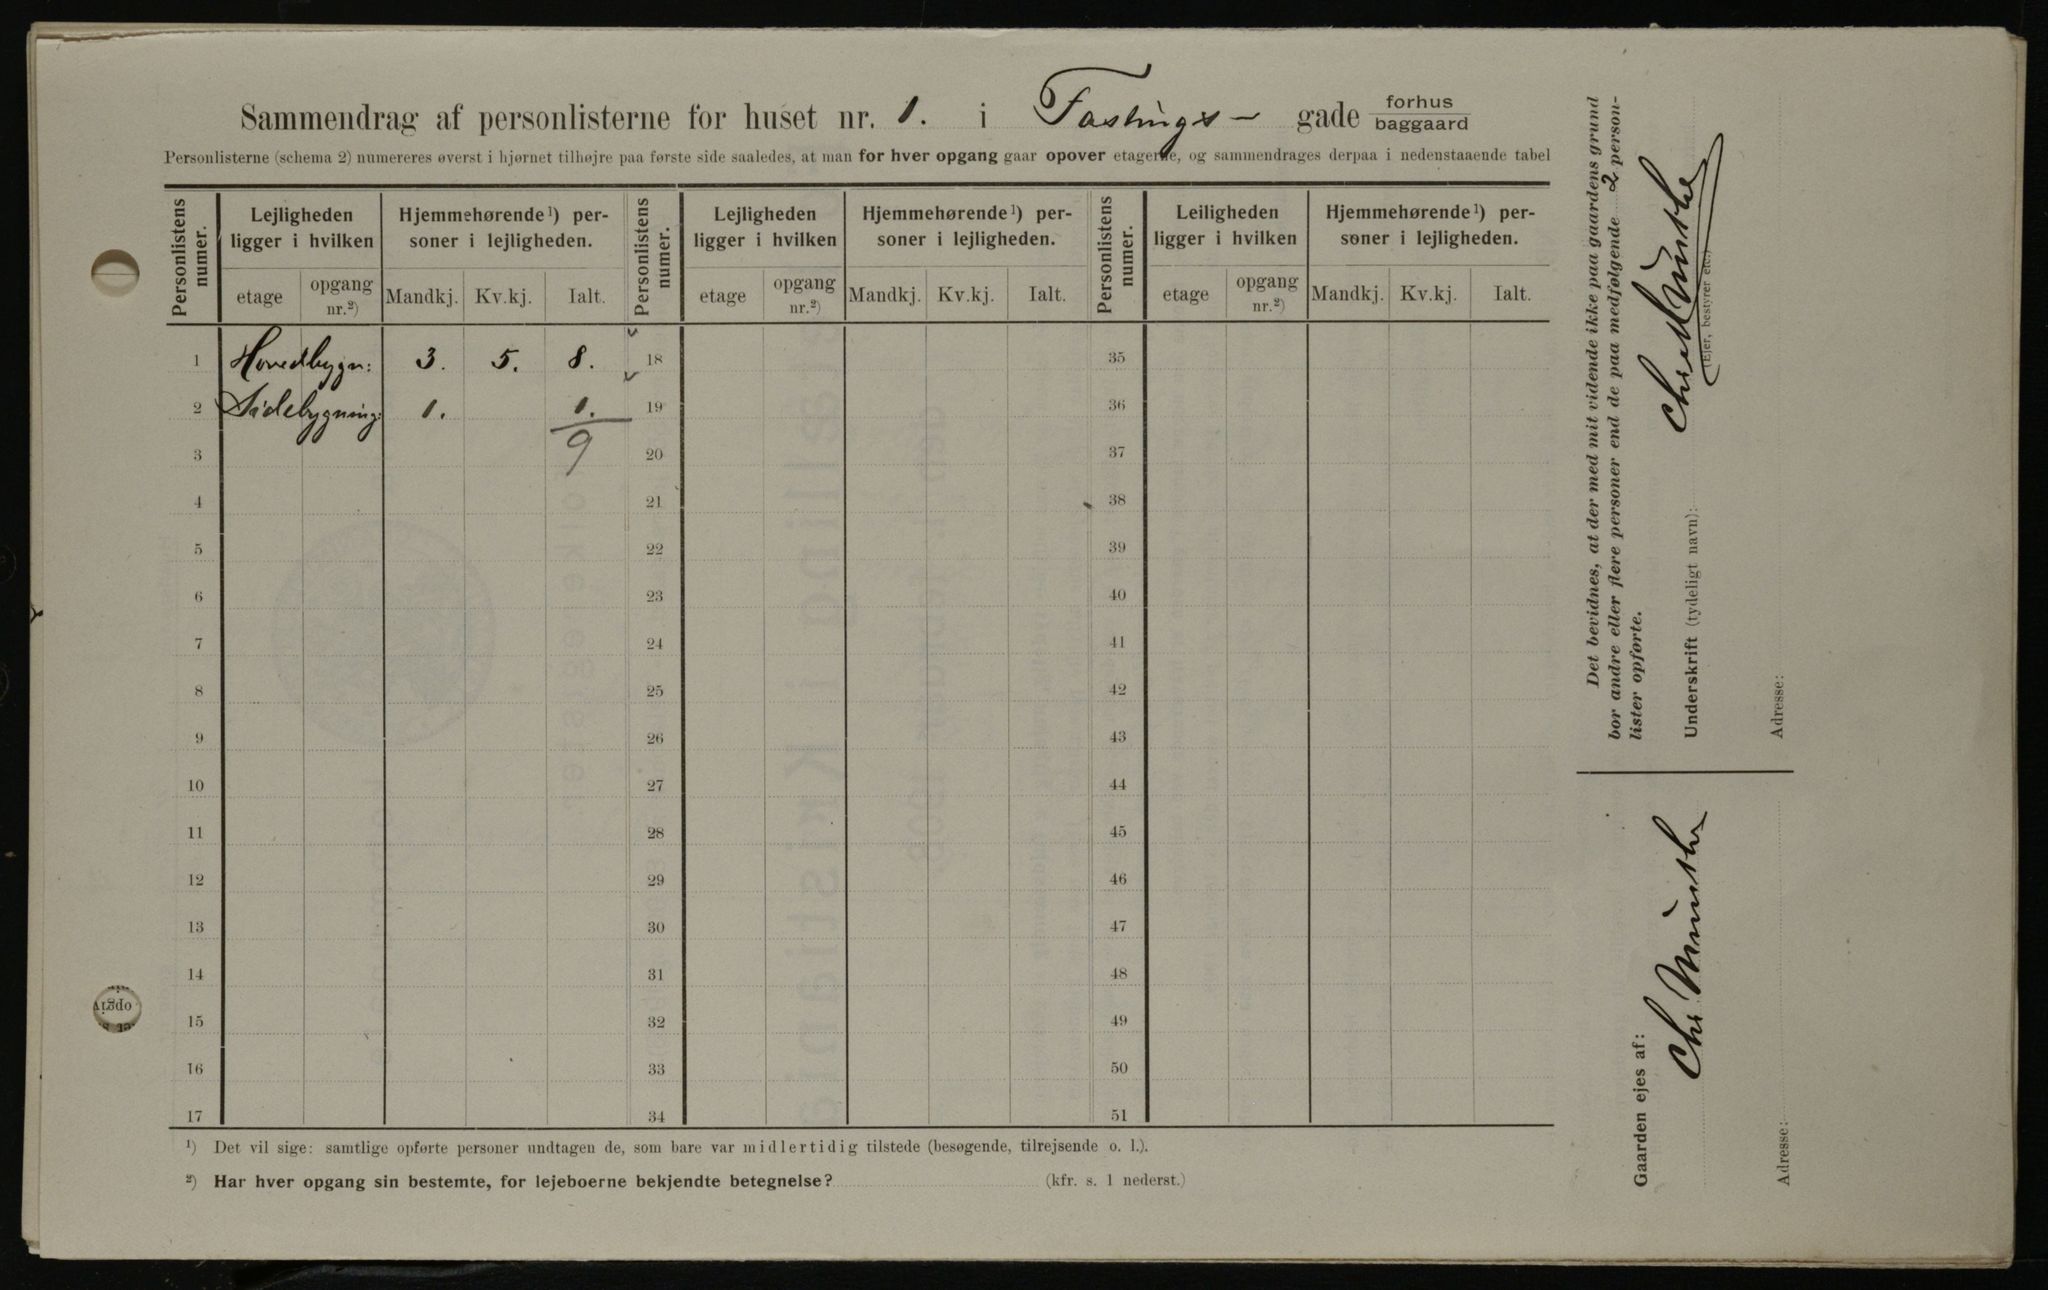 Sammendrag af personlisterne for huset nr. 1. i Fastings- gade forhus baggaard
Personlisterne (schema 2) numereres øverst i hjørnet tilhøjre paa første side saaledes, at man for hver opgang gaar opover etagerne, og sammendrages derpaa i nedenstaaende tabel
Personlistens numer.
Lejligheden ligger i hvilken
Hjemmehørende¹) personer i lejligheden.
etage
opgang nr.²)
Mandkj.
Kv.kj.
Ialt.
Personlistens numer.
Lejligheden ligger i hvilken
Hjemmehørende¹) personer i lejligheden.
etage
opgang nr.²)
Mandkj.
Kv.kj.
Ialt.
Personlistens numer.
Leiligheden ligger i hvilken
Hjemmehørende¹) personer i lejligheden.
etage
opgang nr.²)
Mandkj.
Kv.kj.
Ialt.
1 Hovedbygn: 3. 5. 8. 18 35
2 Sidebygning: 1. 1. 19 36
3 9 20 37
4 21 38
5 22 39
6 23 40
7 24 41
8 25 42
9 26 43
10 27 44
11 28 45
12 29 46
13 30 47
14 31 48
15 32 49
16 33 50
17 34 51
¹) Det vil sige: samtlige opførte personer undtagen de, som bare var midlertidig tilstede (besøgende, tilrejsende o. l.).
²) Har hver opgang sin bestemte, for lejeboerne bekjendte betegnelse? (kfr. s. 1 nederst.)
Det bevidnes, at der med mit vidende ikke paa gaardens grund
bor andre eller flere personer end de paa medfølgende 2 person-
lister opførte.
Underskrift (tydeligt navn):
(Ejer, bestyrer etc.)
Adresse:
Gaarden ejes af:
Chr Münster
Adresse: